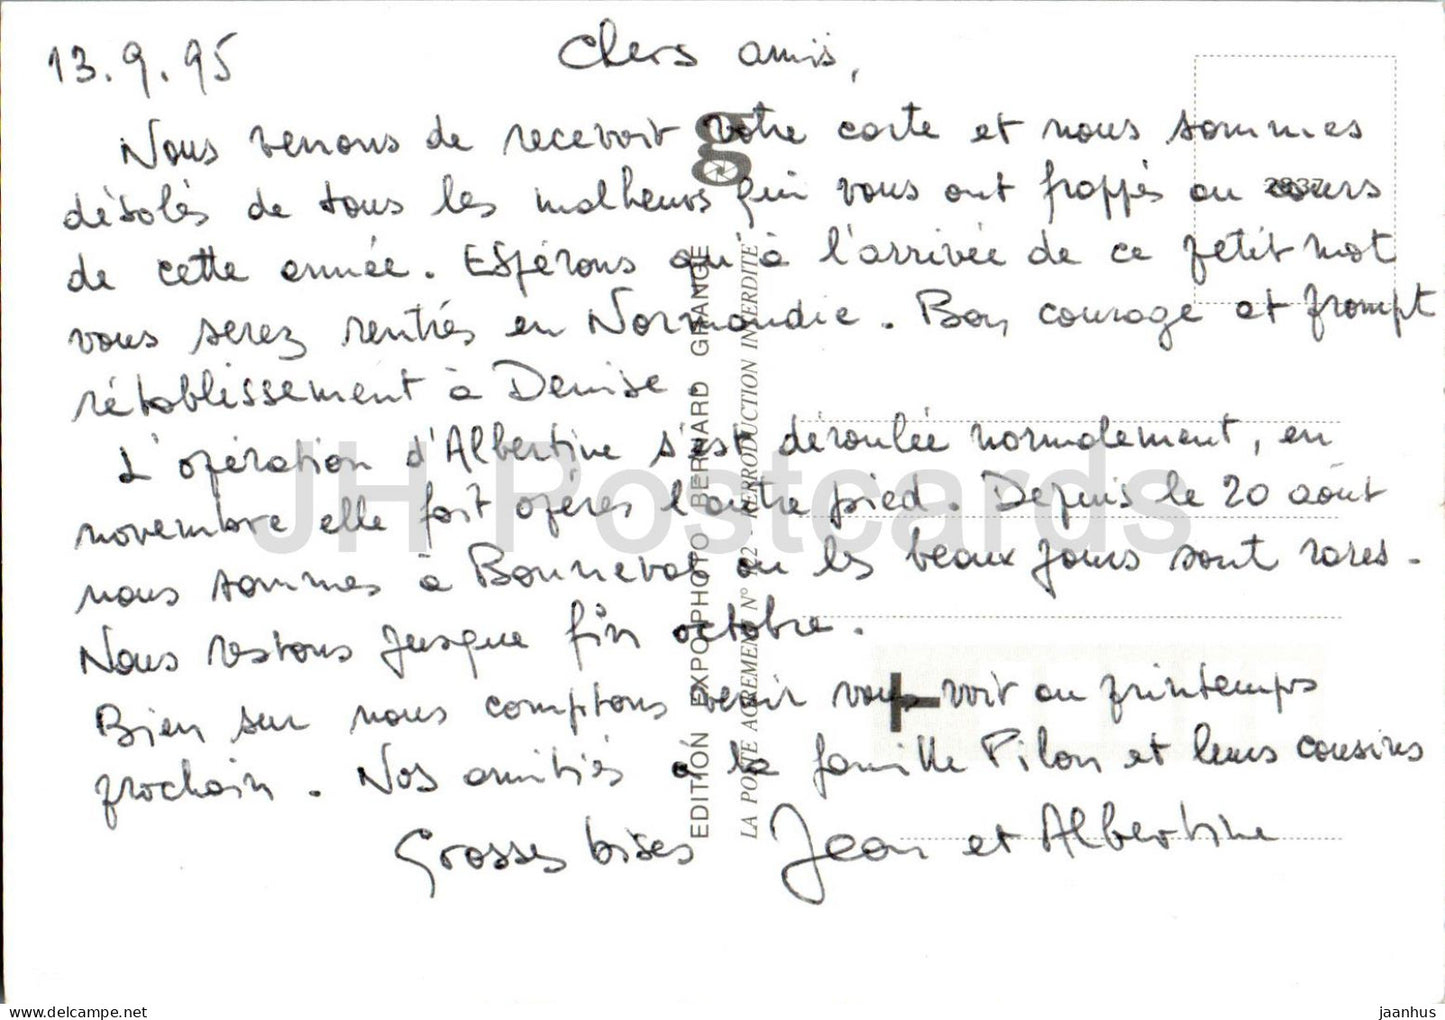 13.9.95
Chers amis,
Nous venons de recevoir votre carte et nous sommes
désolés de tous les malheurs qui vous ont frappés au cours
de cette année. Espérons qu'à l'arrivée de ce petit mot
vous serez rentrés en Normandie. Bon courage et prompt
rétablissement à Denise.
L'opération d'Albertine s'est déroulée normalement, en
novembre elle fait opérer l'autre pied. Depuis le 20 août
nous sommes à Bonneval ou les beaux jours sont rares.
Nous restons jusque fin octobre.
Bien sur nous comptons venir vous voir au printemps
prochain. Nos amitiés à la famille Pilon et leurs cousins
Grosses bises Jean et Albertine
g
EDITION EXPO PHOTO BERNARD GRANGE
LA POSTE AGREMENT N° 922 - REPRODUCTION INTERDITE
2837
JH Postcards
www.delcampe.net
jaanhus